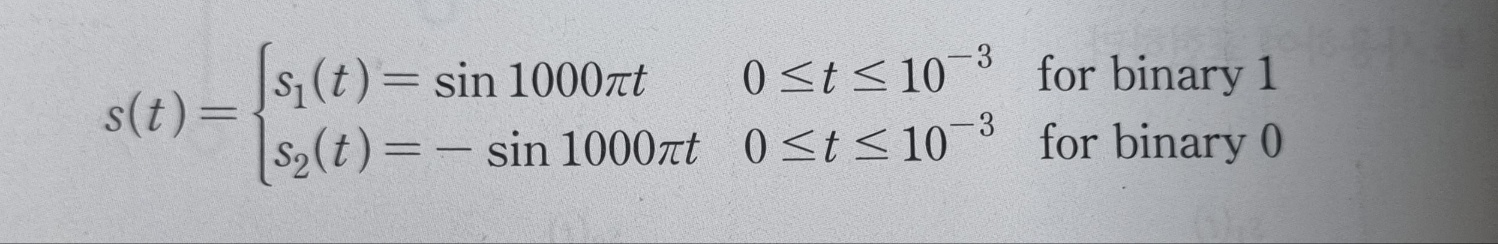 s(t) = { s₁(t) = sin 1000πt 0 ≤ t ≤ 10⁻³ for binary 1
s₂(t) = − sin 1000πt 0 ≤ t ≤ 10⁻³ for binary 0